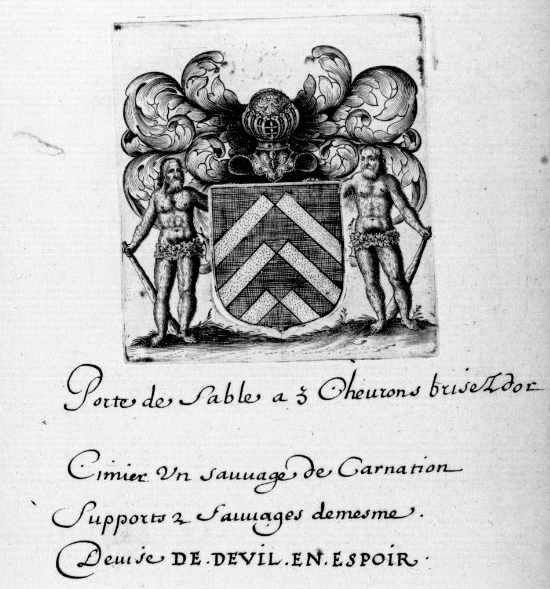 Porte de Sable a 3 Cheurons briseZ dor
Cimier Vn sauuage de Carnation
Supports 2 Sauuages demesme.
Deuise DE·DEVIL·EN·ESPOIR·